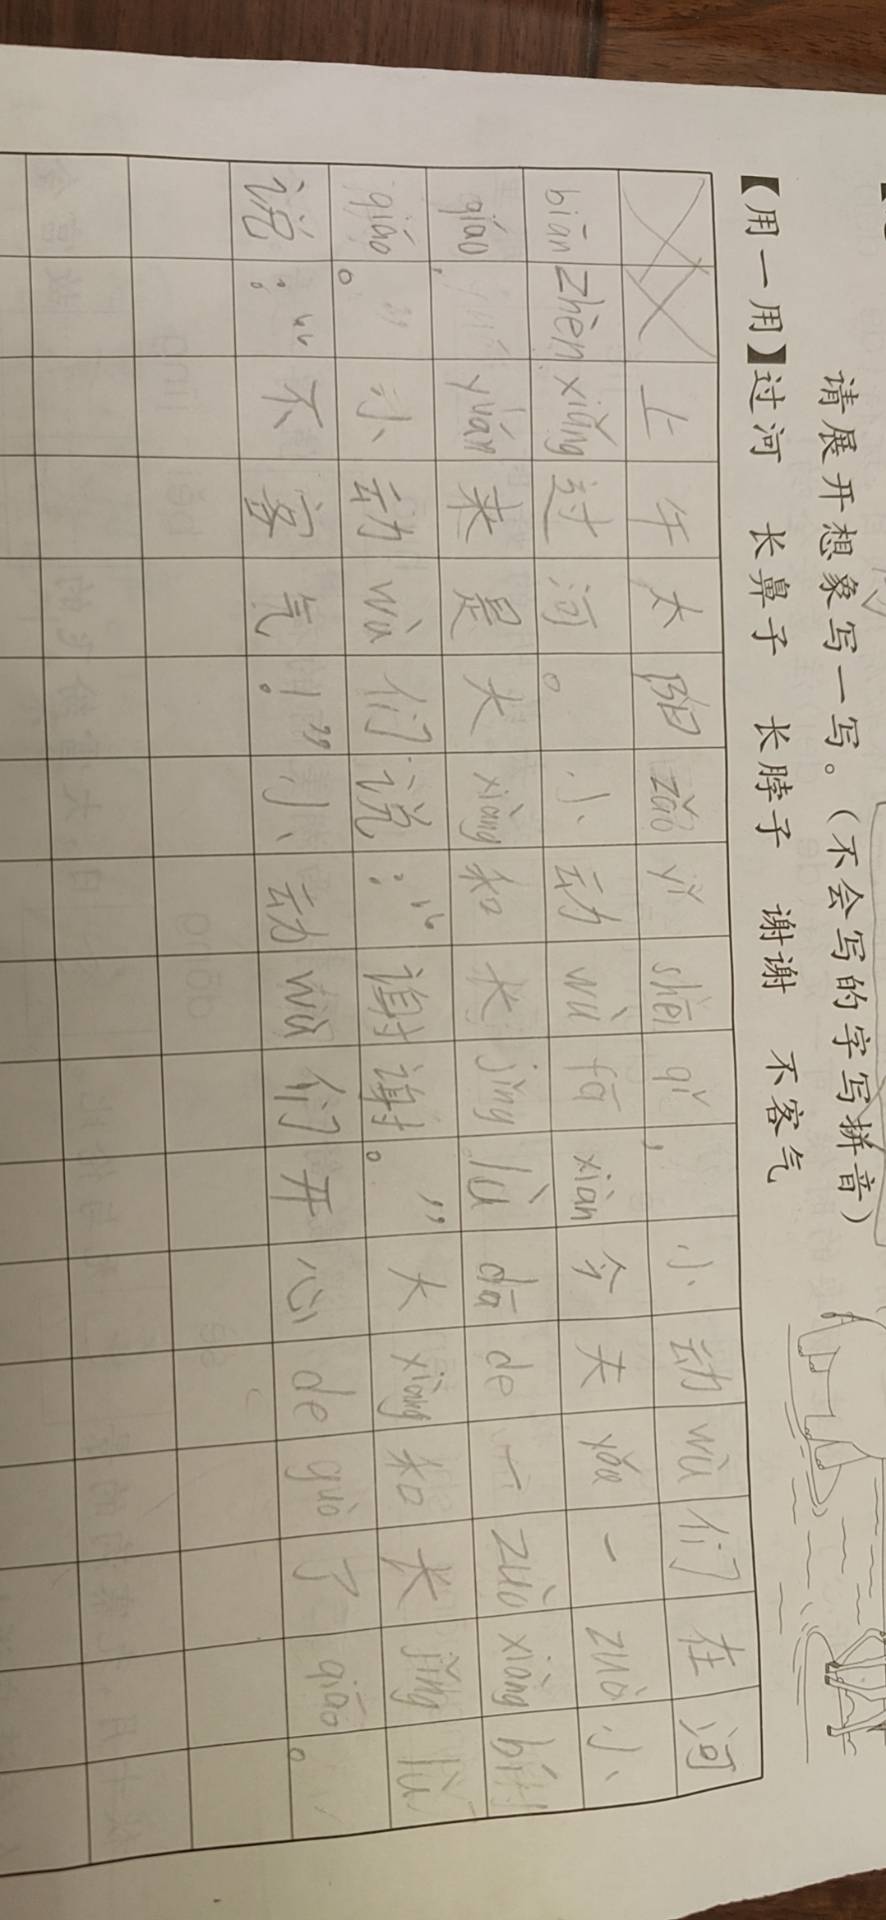 请展开想象写一写。（不会写的字写拼音）
【用一用】过河 长鼻子 长脖子 谢谢 不客气
上午太阳zǎo yǐ shēn qǐ，小动wù们在河
biān zhèn xiǎng过河。小动wù fā xiàn今天yǒu一zuò小
qiáo，yuán来是大xiàng和长jǐng lù dā de一zuò xiàng bí
qiáo。”小动wù们说：“谢谢。”大xiàng和长jǐng lù
说：“不客气！”小动wù们开心de guò了qiáo。